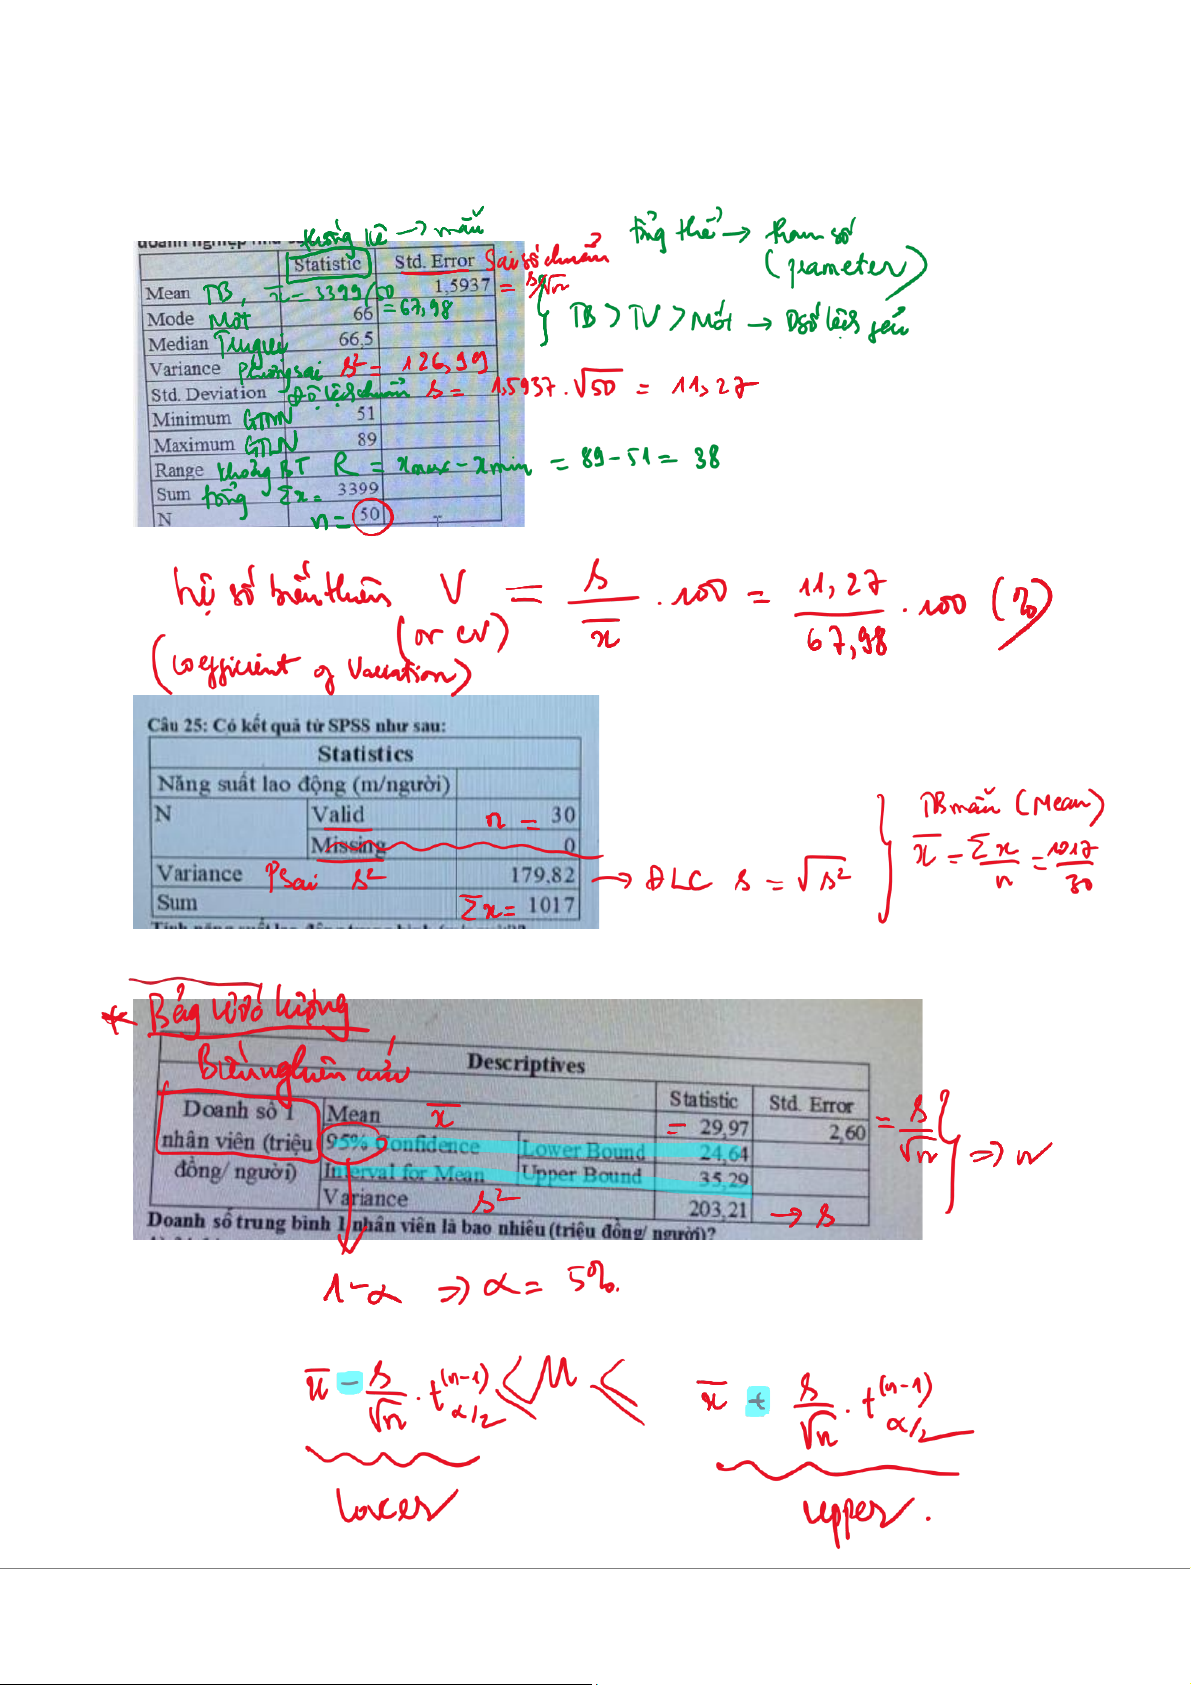 thống kê → mẫu
tổng thể → tham số
(parameter)
Statistic Std. Error Sai số chuẩn
Mean TB, x̄ = 3399/50 1,5937 = s/√n
= 67,98
Mode Mốt 66
TB > TV > Mốt → Dsố lệch phải
Median Trung vị 66,5
Variance phương sai s² = 126,99
Std. Deviation Độ lệch chuẩn s = 1,5937 . √50 = 11,27
Minimum GTNN 51
Maximum GTLN 89
Range khoảng BT R = xmax - xmin = 89 - 51 = 38
Sum tổng Σx = 3399
N n = 50
hệ số biến thiên V = s/x̄ . 100 = 11,27/67,98 . 100 (%)
(or CV)
(Coefficient of Variation)
Câu 25: Có kết quả từ SPSS như sau:
Statistics
Năng suất lao động (m/người)
N Valid n = 30
Missing 0
Variance Psai s² 179,82 → ĐLC s = √s²
Sum Σx = 1017
TB mẫu (Mean)
x̄ = Σx/n = 1017/30
* Bảng ước lượng
Biến nghiên cứu
Descriptives
Statistic Std. Error
Doanh số 1 nhân viên (triệu đồng/ người)
Mean x̄ = 29,97 2,60 = s/√n ⇒ n
95% Confidence Interval for Mean
Lower Bound 24,64
Upper Bound 35,29
Variance s² 203,21 → s
Doanh số trung bình 1 nhân viên là bao nhiêu (triệu đồng/ người)?
1 - α ⇒ α = 5%.
x̄ - s/√n . t(n-1) α/2 < M < x̄ + s/√n . t(n-1) α/2
lower upper.